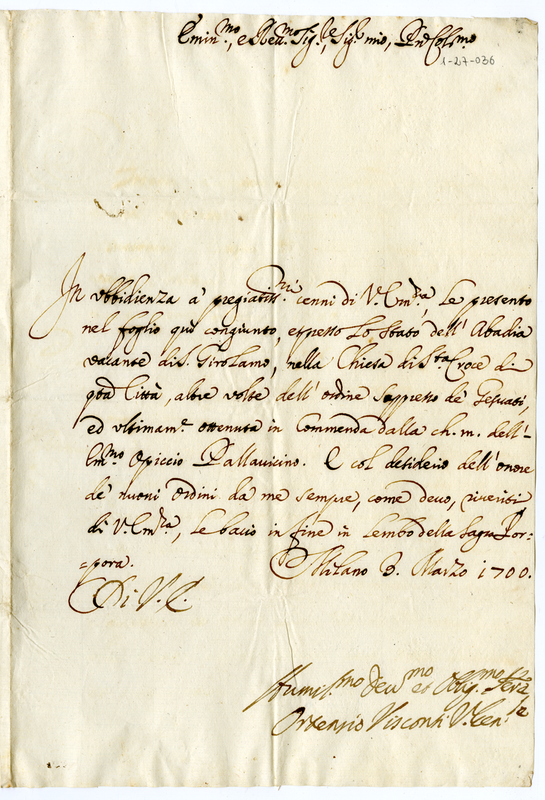 Emin.mo, e Reu.mo Sig.re, Sig.r mio, Pron Colmo
1-27-036
In vbbidienza a' pregiatiss.mi cenni di V. Em.za, le presento
nel foglio qui congiunto, espresso lo stato dell' Abadia
vacante di S. Girolamo, nella Chiesa di S.ta Croce di
qta Città, altre volte dell' ordine soppresso de' Gesuati,
ed vltimam.e ottenuta in Commenda dalla ch. m. dell'-
Em.mo Opiccio Pallauicino. E col desiderio dell' onore
de' nuoui ordini da me sempre, come deuo, riueriti
di V. Em.za, le bacio in fine in lembo della Sagra Por-
=pora. Milano 3. Marzo 1700.
Di V. E.
Humil.mo Deu.mo et Oblig.mo Ser.re
Ortensio Visconti V. Gen.le